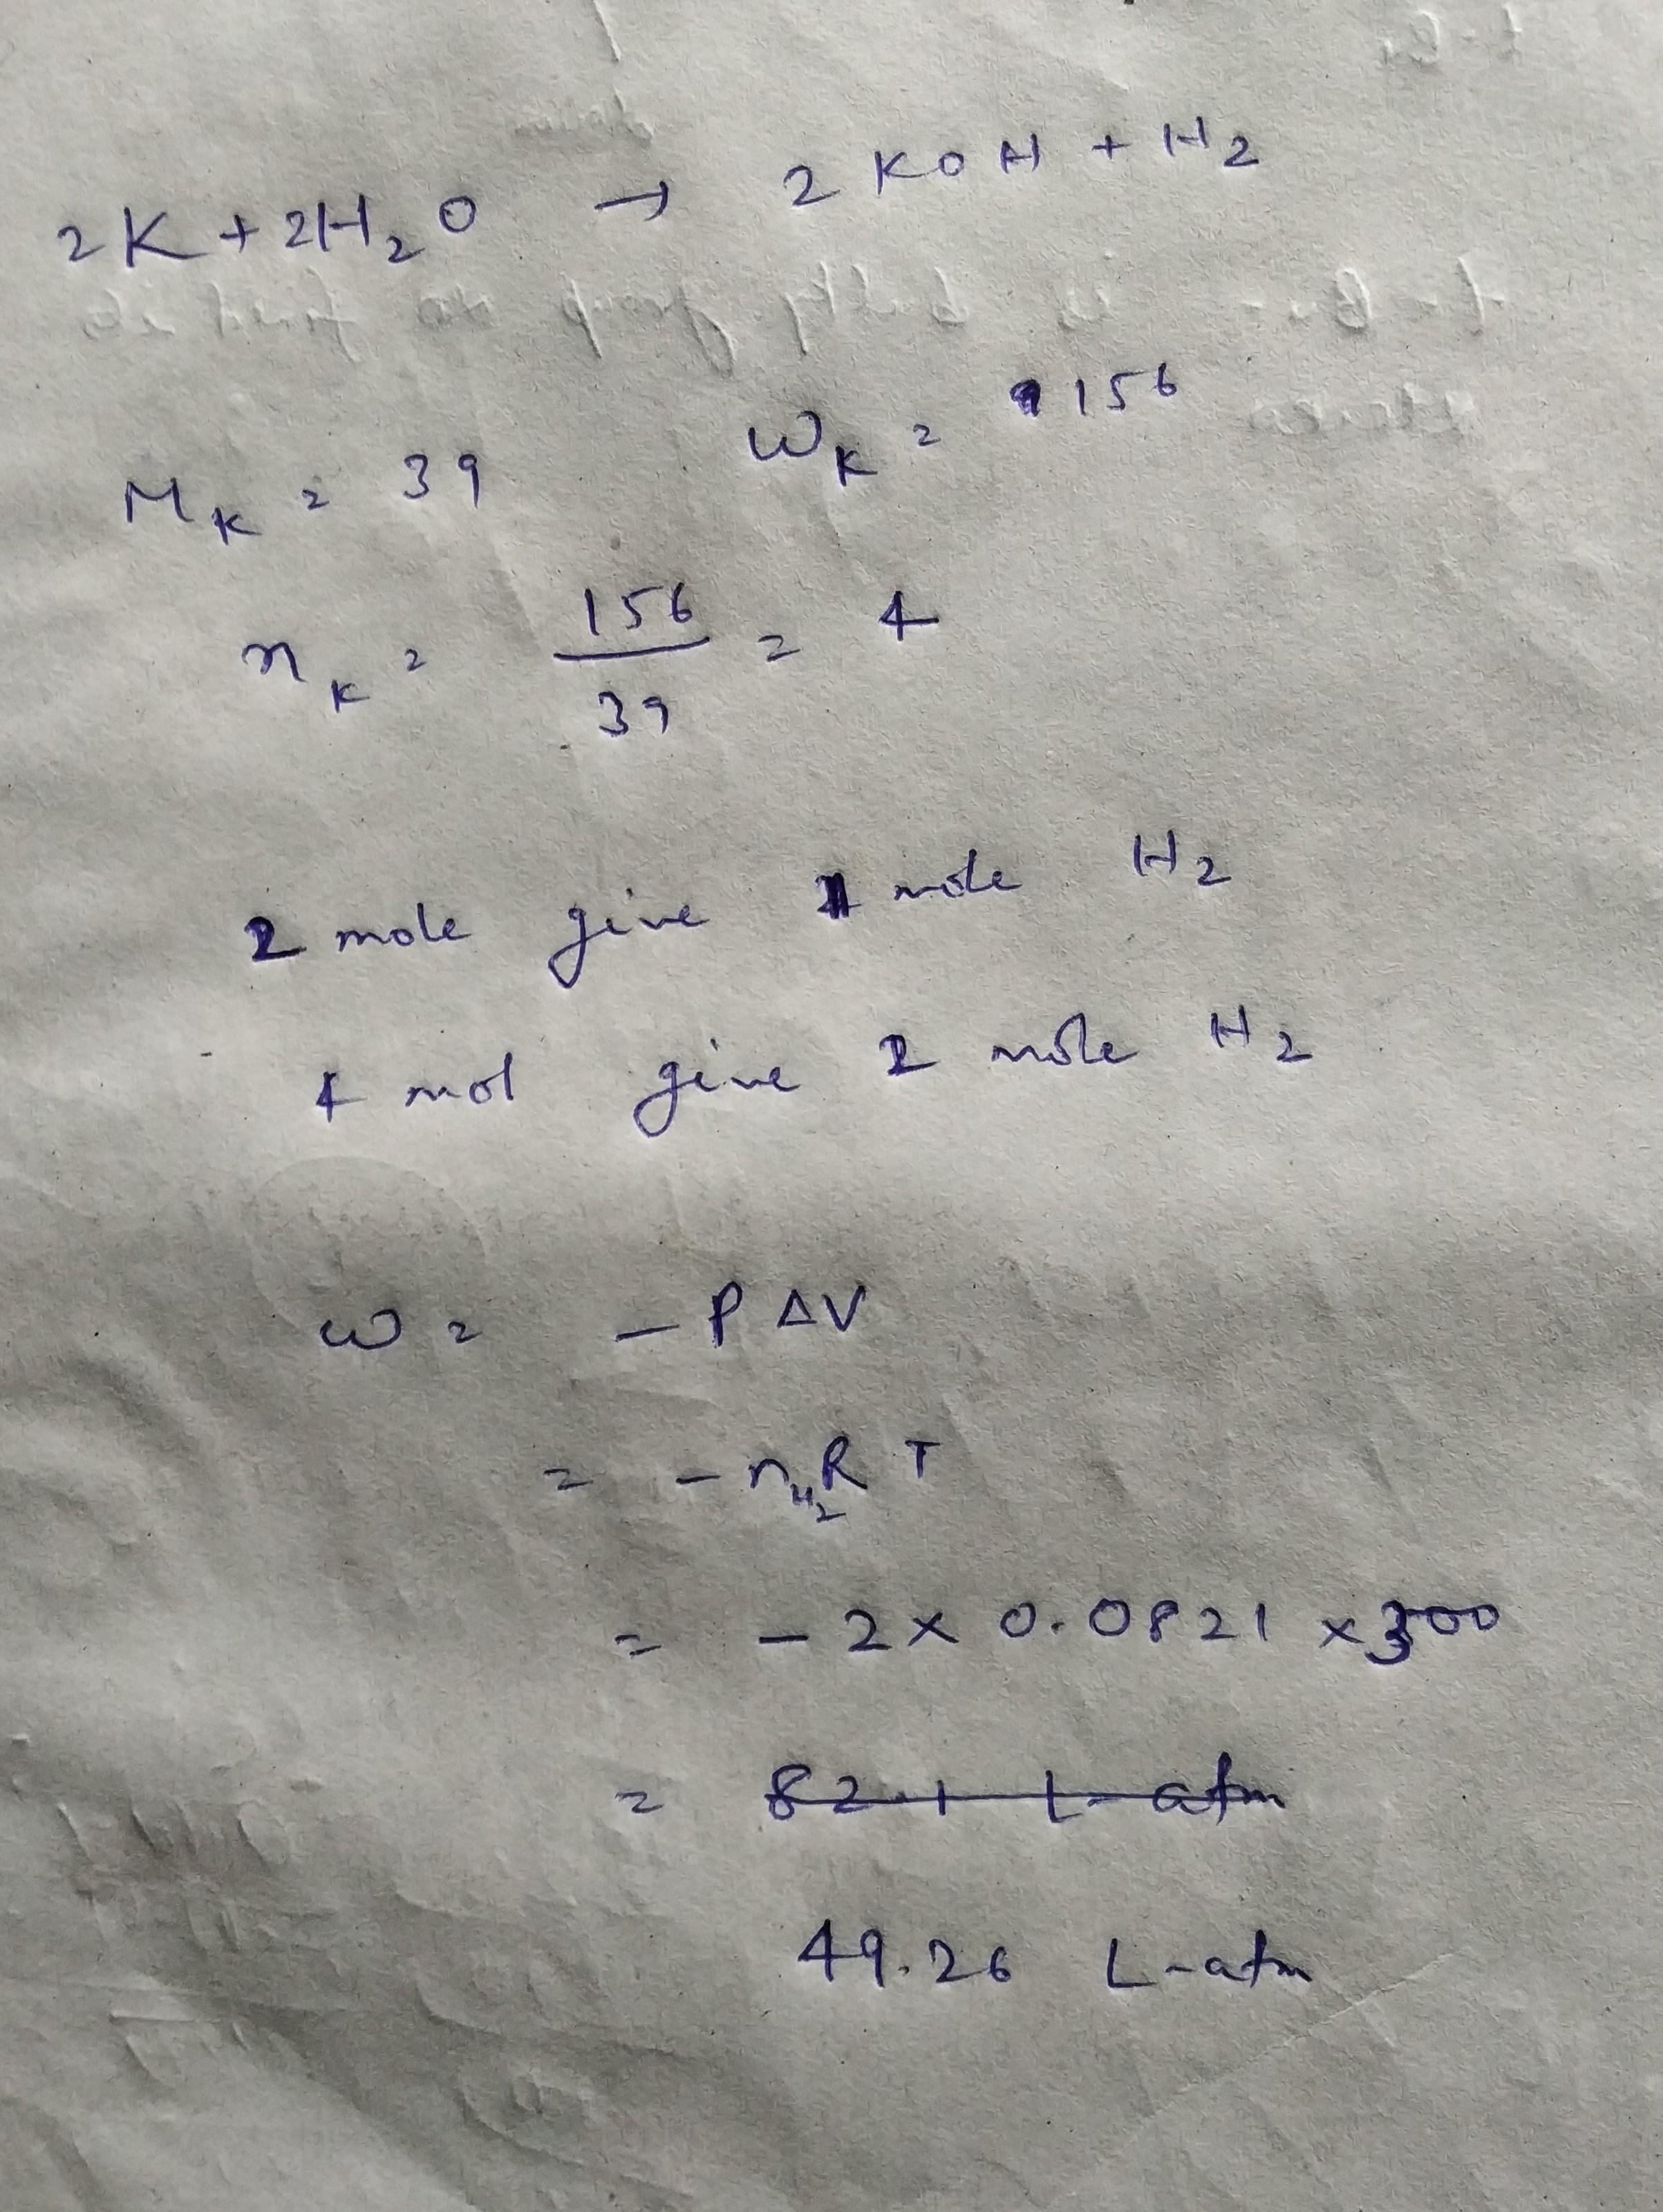 2K + 2H₂O → 2KOH + H₂
M_K = 39 W_K = 156
n_K = 156/39 = 4
2 mole give 1 mole H₂
4 mol give 2 mole H₂
W = - P ΔV
= - n_H₂ R T
= - 2 × 0.0821 × 300
= 82.1 L-atm
49.26 L-atm